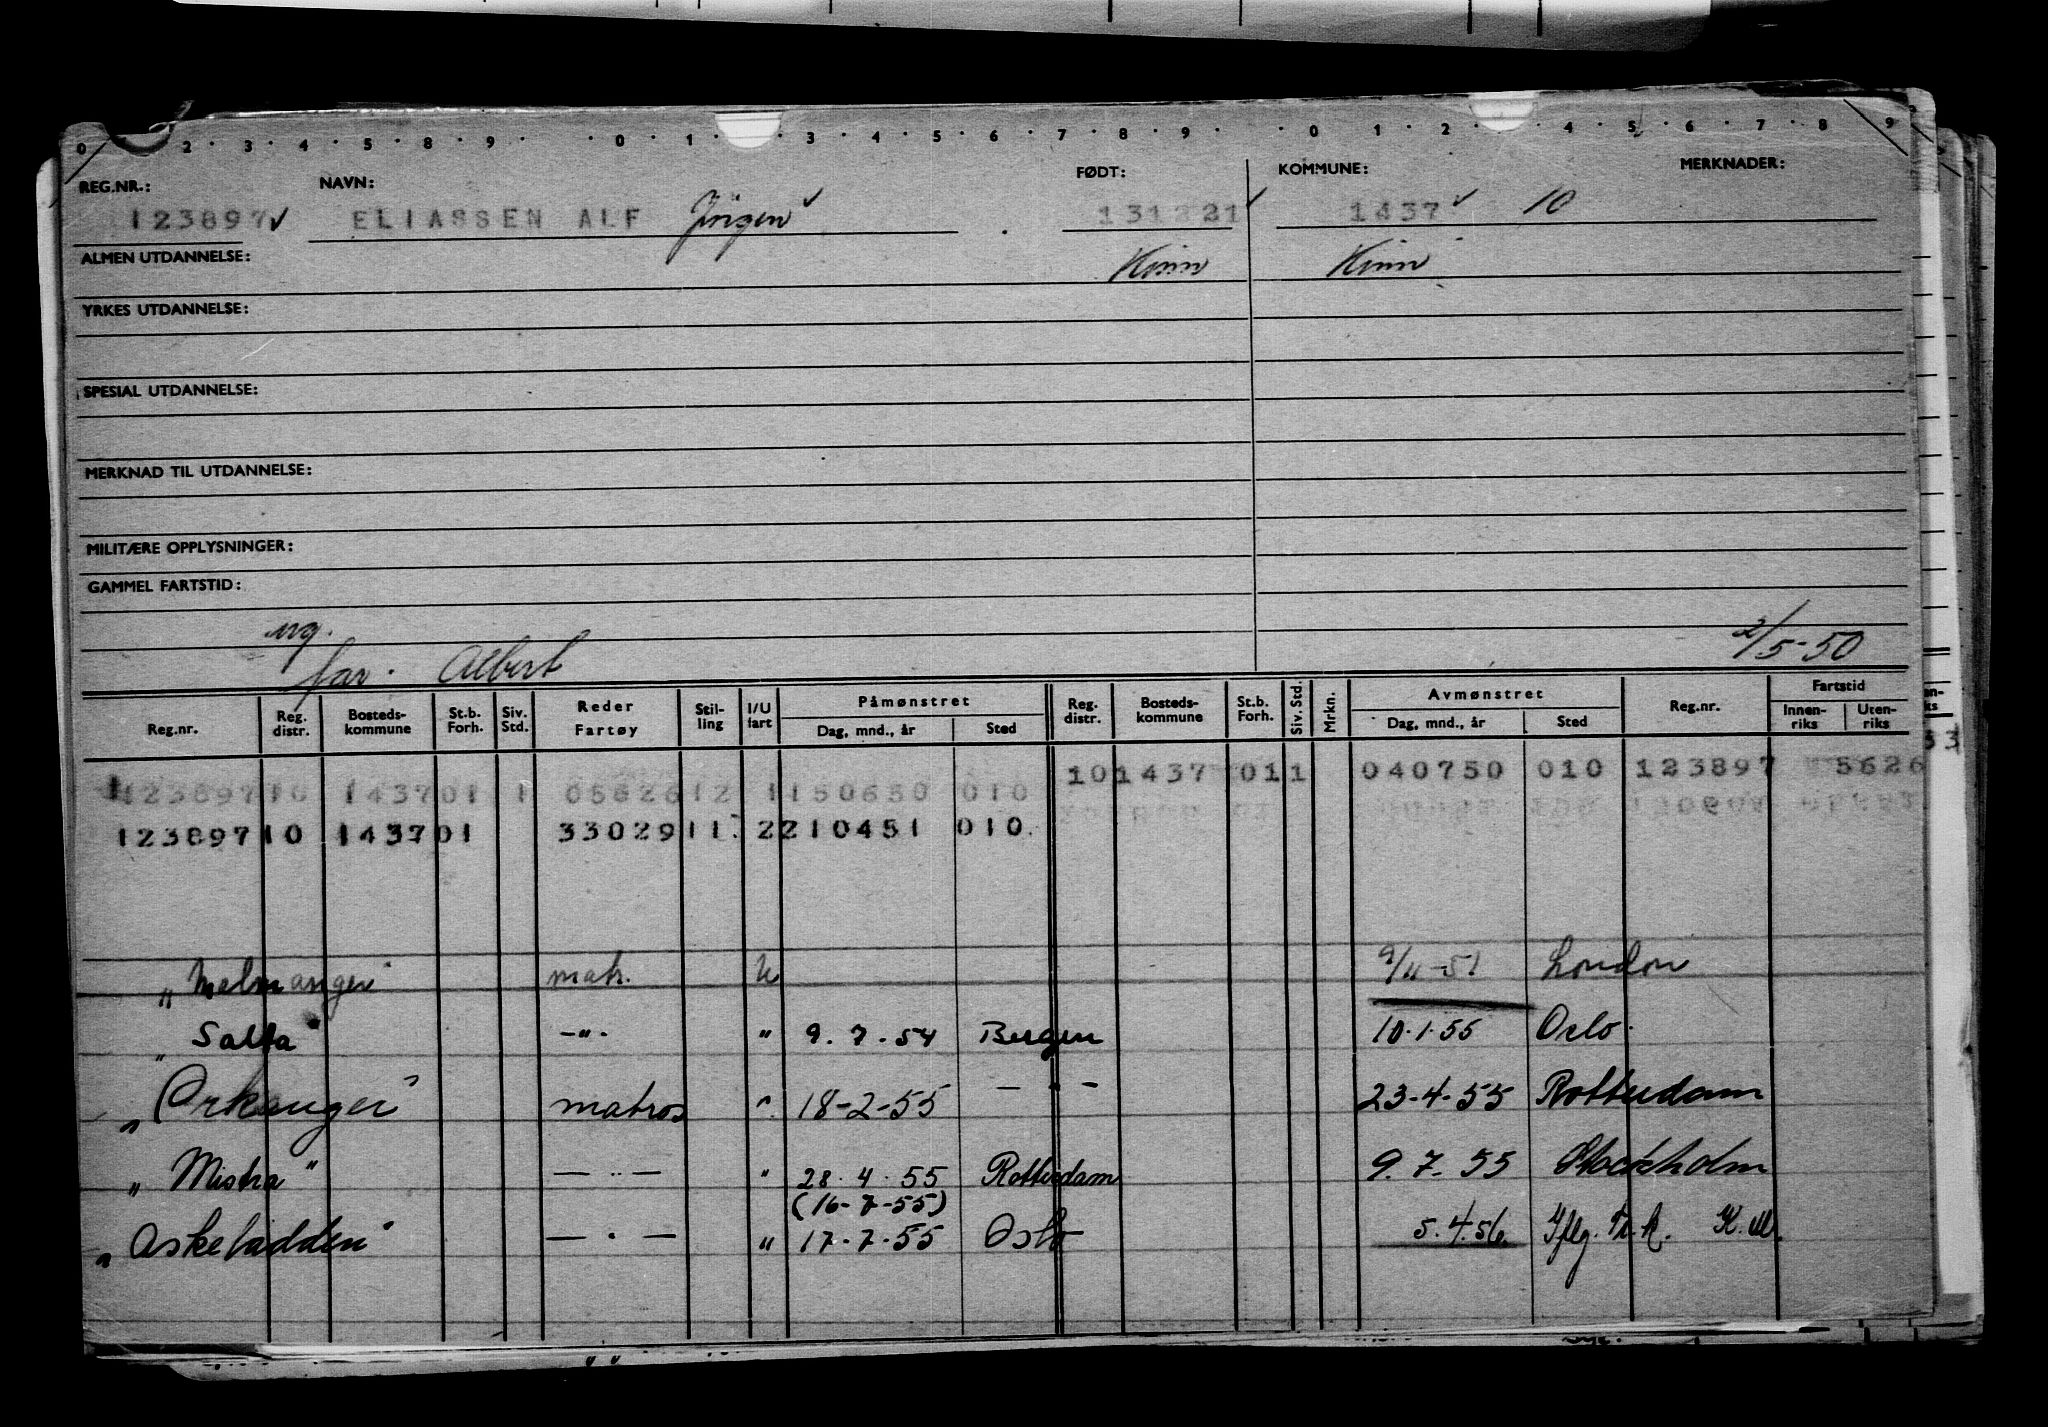 0 2 3 4 5 8 9 0 1 3 4 5 6 7 8 9 0 1 2 4 5 6 7 8 9
REG.NR.: NAVN: FØDT: KOMMUNE: MERKNADER:
123897 ELIASSEN ALF Jörgen 131221 1437 10
ALMEN UTDANNELSE: Kinn Kinn
YRKES UTDANNELSE:
SPESIAL UTDANNELSE:
MERKNAD TIL UTDANNELSE:
MILITÆRE OPPLYSNINGER:
GAMMEL FARTSTID:
ug.
far. Albert 2/5-50
Reg.nr. Reg. distr. Bosteds-kommune St.b. Forh. Siv. Std. Reder Fartøy Stil-ling I/U fart Påmønstret Dag, mnd., år Sted Reg. distr. Bosteds-kommune St.b. Forh. Siv. Std. Mrkn. Avmønstret Dag, mnd., år Sted Reg.nr. Fartstid Innen-riks Uten-riks
123897 10 1437 01 1 05626 12 1 150650 010 10 1437 01 1 040750 010 123897 5626
123897 10 1437 01 33029 11 2 210451 010
"Melmanger" matr. U 9/11-51 London
"Salta" -"- " 9.7.54 Bergen 10.1.55 Oslo.
"Orkanger" matros " 18-2-55 - " - 23-4-55 Rotterdam
"Mistra" — " — " 28.4.55 Rotterdam 9.7.55 Stockholm
(16-7-55)
"Askeladden" — " — " 17-7-55 Oslo 5.4.56. Iflg. K.M.